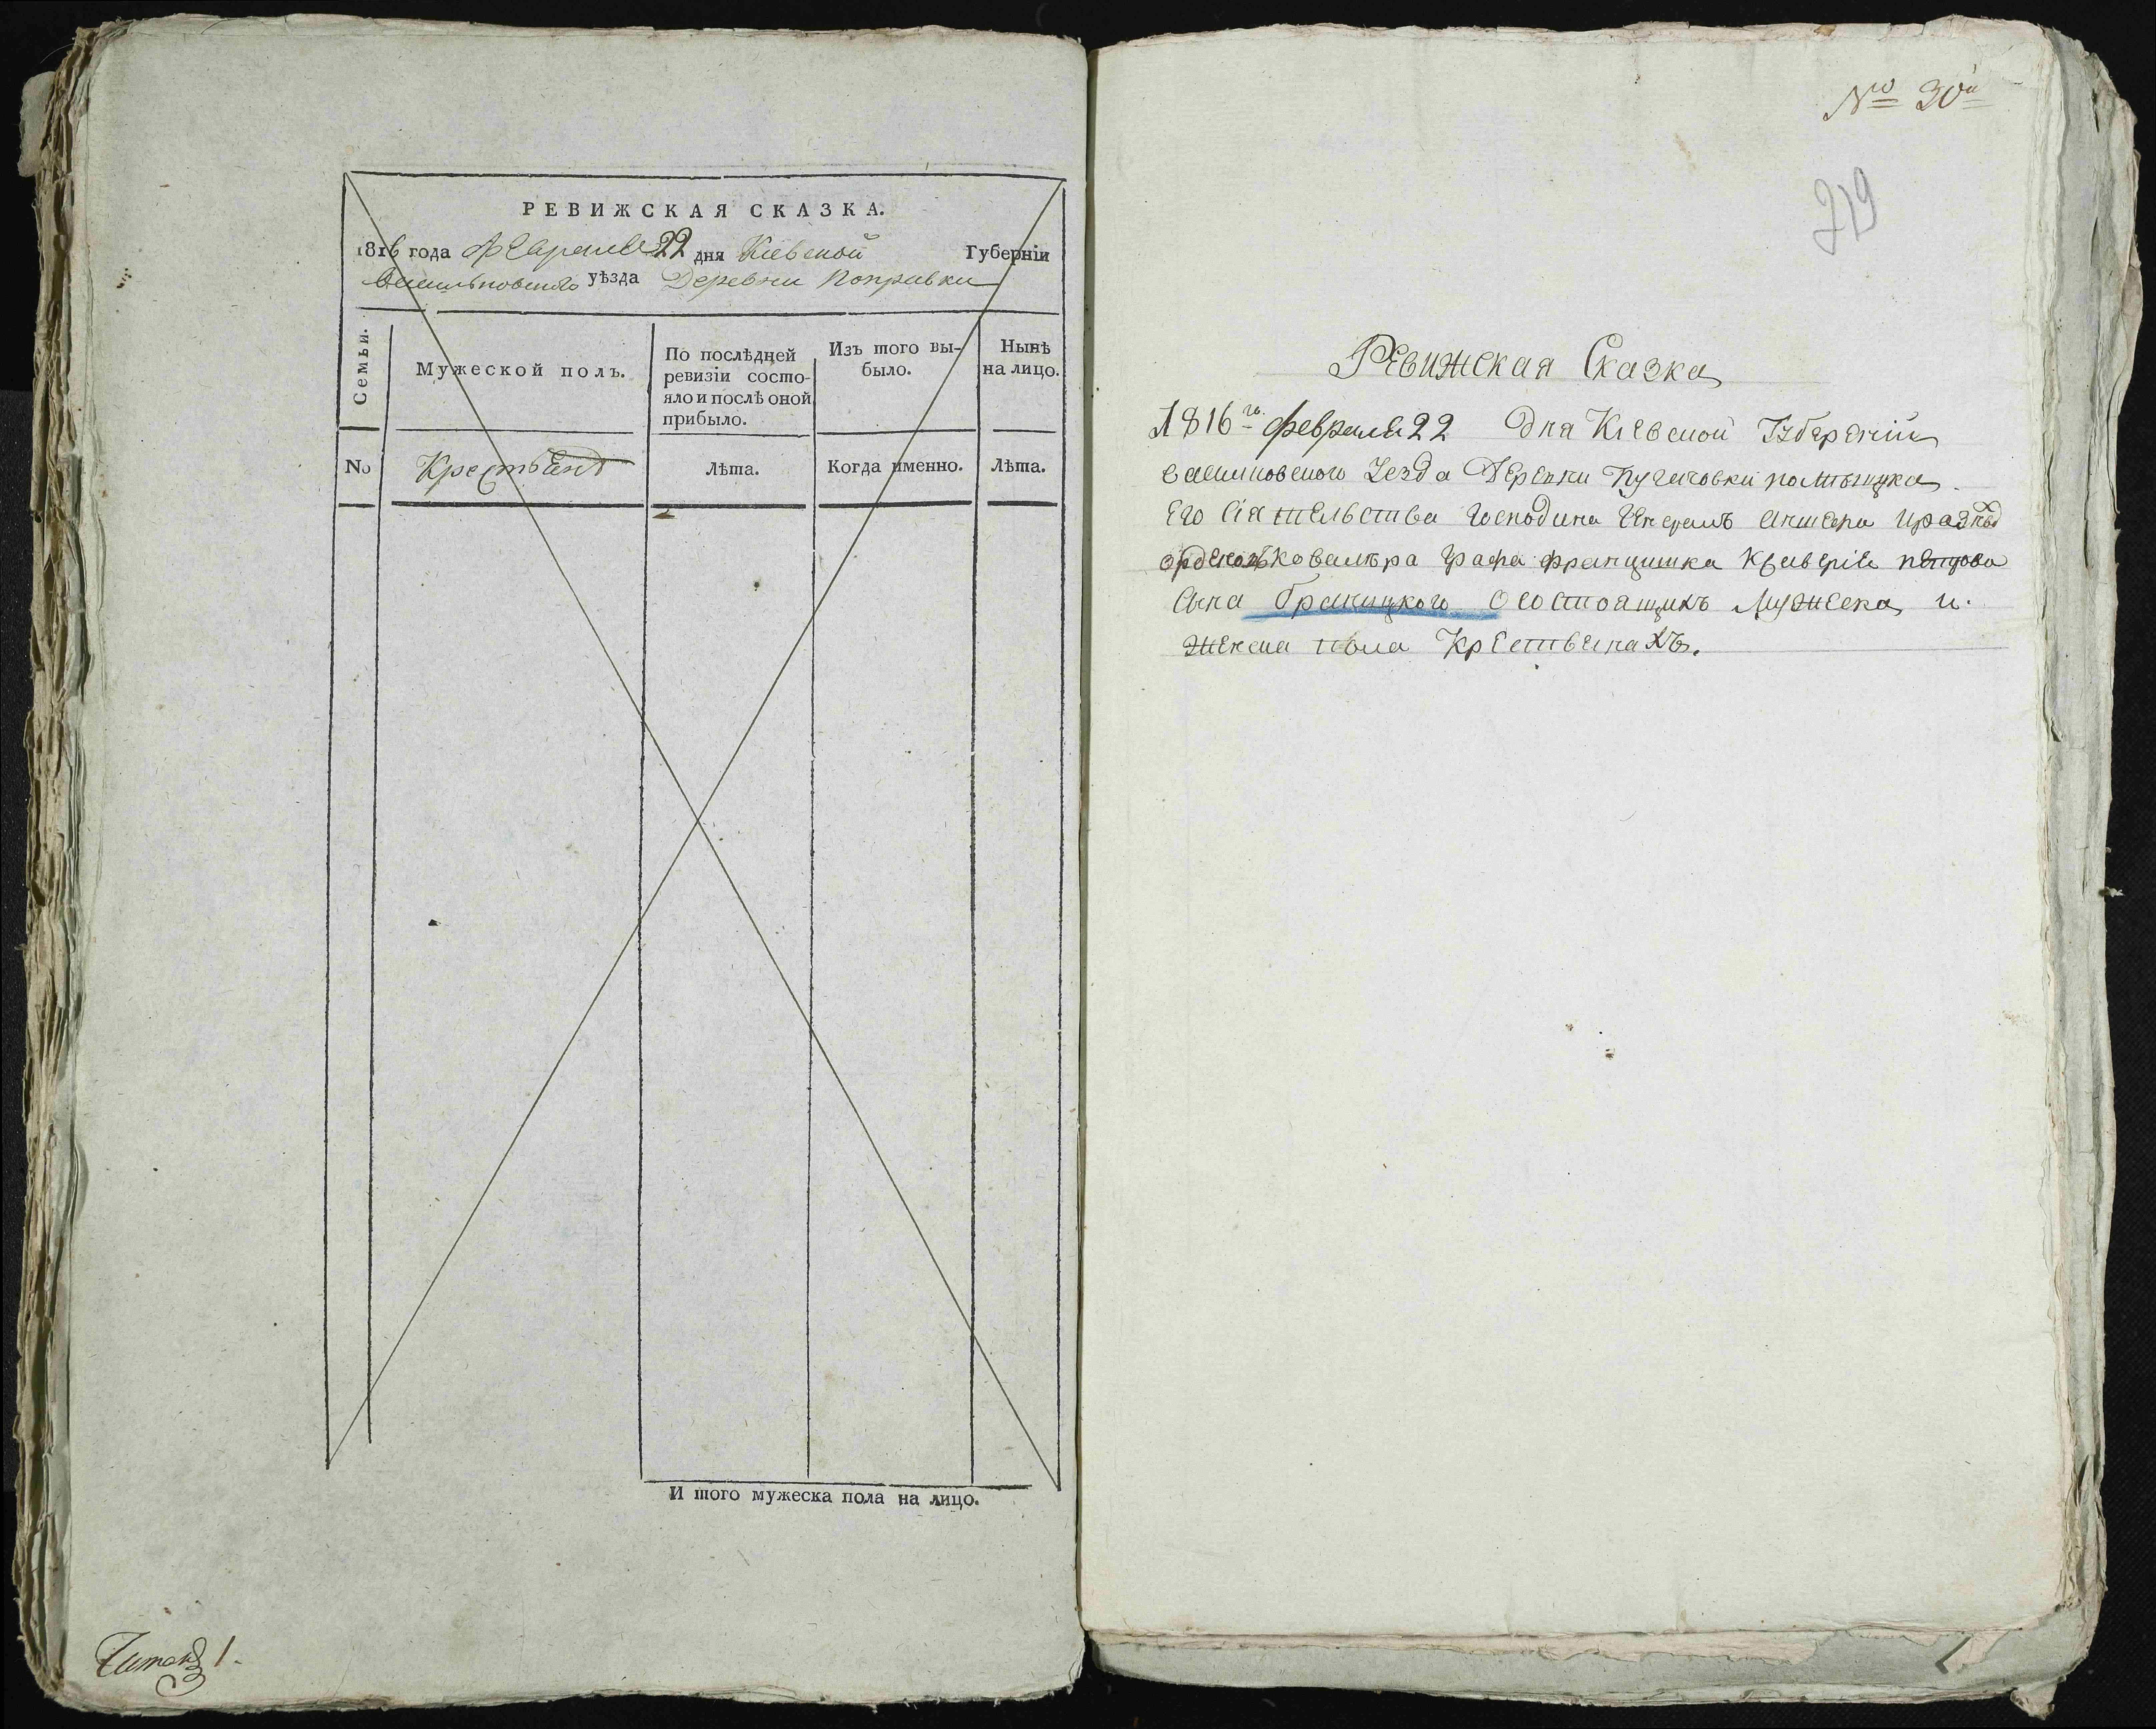 РЕВИЖСКАЯ СКАЗКА.
1816 года Февраля 22 дня Кіевской Губерніи
Васильковского уѣзда Деревни Поправки
Семьи.
Мужеской полъ.
По послѣдней
ревизіи состо-
яло и послѣ оной
прибыло.
Изъ того вы-
было.
Нынѣ
на лицо.
No
Крестьянъ
Лѣта.
Когда именно.
Лѣта.
И того мужеска пола на лицо.
1.
№ 30й
219
Ревижская Сказка
1816 го. февраля 22 дня Кіевской Губерніи
василковского Уезда Деревни Пугачовки помѣщика
Его Сіятельства Господина Генералъ аншефа и разныхъ
орденовъ Ковалѣра Графа Францишка Ксаверія петрова
сына Браницкого О состоящихъ Мужеска и
женска пола Крестьянахъ.